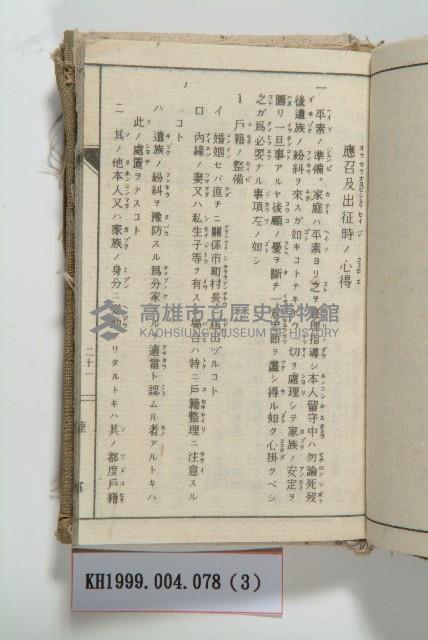 應召及出征時ノ心得
一 平素ノ準備。家庭ハ平素ヨリ之ヲ整理指導シ本人留守中ハ勿論死歿
後遺族ノ紛糾ヲ來スガ如キコトナキ 切ヲ處理シテ家族ノ安定ヲ
圖リ一旦事アルヤ後顧ノ憂ヲ斷テ一意忠節ヲ盡シ得ル如ク心掛クベシ
之ガ爲必要ナル事項左ノ如シ
1 戶籍ノ整備
イ 婚姻セバ直チニ關係市町村長 屆出ヅルコト
ロ 內緣ノ妻又ハ私生子等ヲ有ス 場合ハ特ニ戶籍整理ニ注意スル
コト
ハ 遺族ノ紛糾ヲ豫防スル爲分家 適當ト認ムル者アルトキハ
此ノ處置ヲナスコト
ニ 其ノ他本人又ハ家族ノ身分ニ 動 リタルトキハ其ノ都度戶籍
二十一
陸軍
高雄市立歷史博物館
KAOHSIUNG MUSEUM OF HISTORY
KH1999.004.078(3)